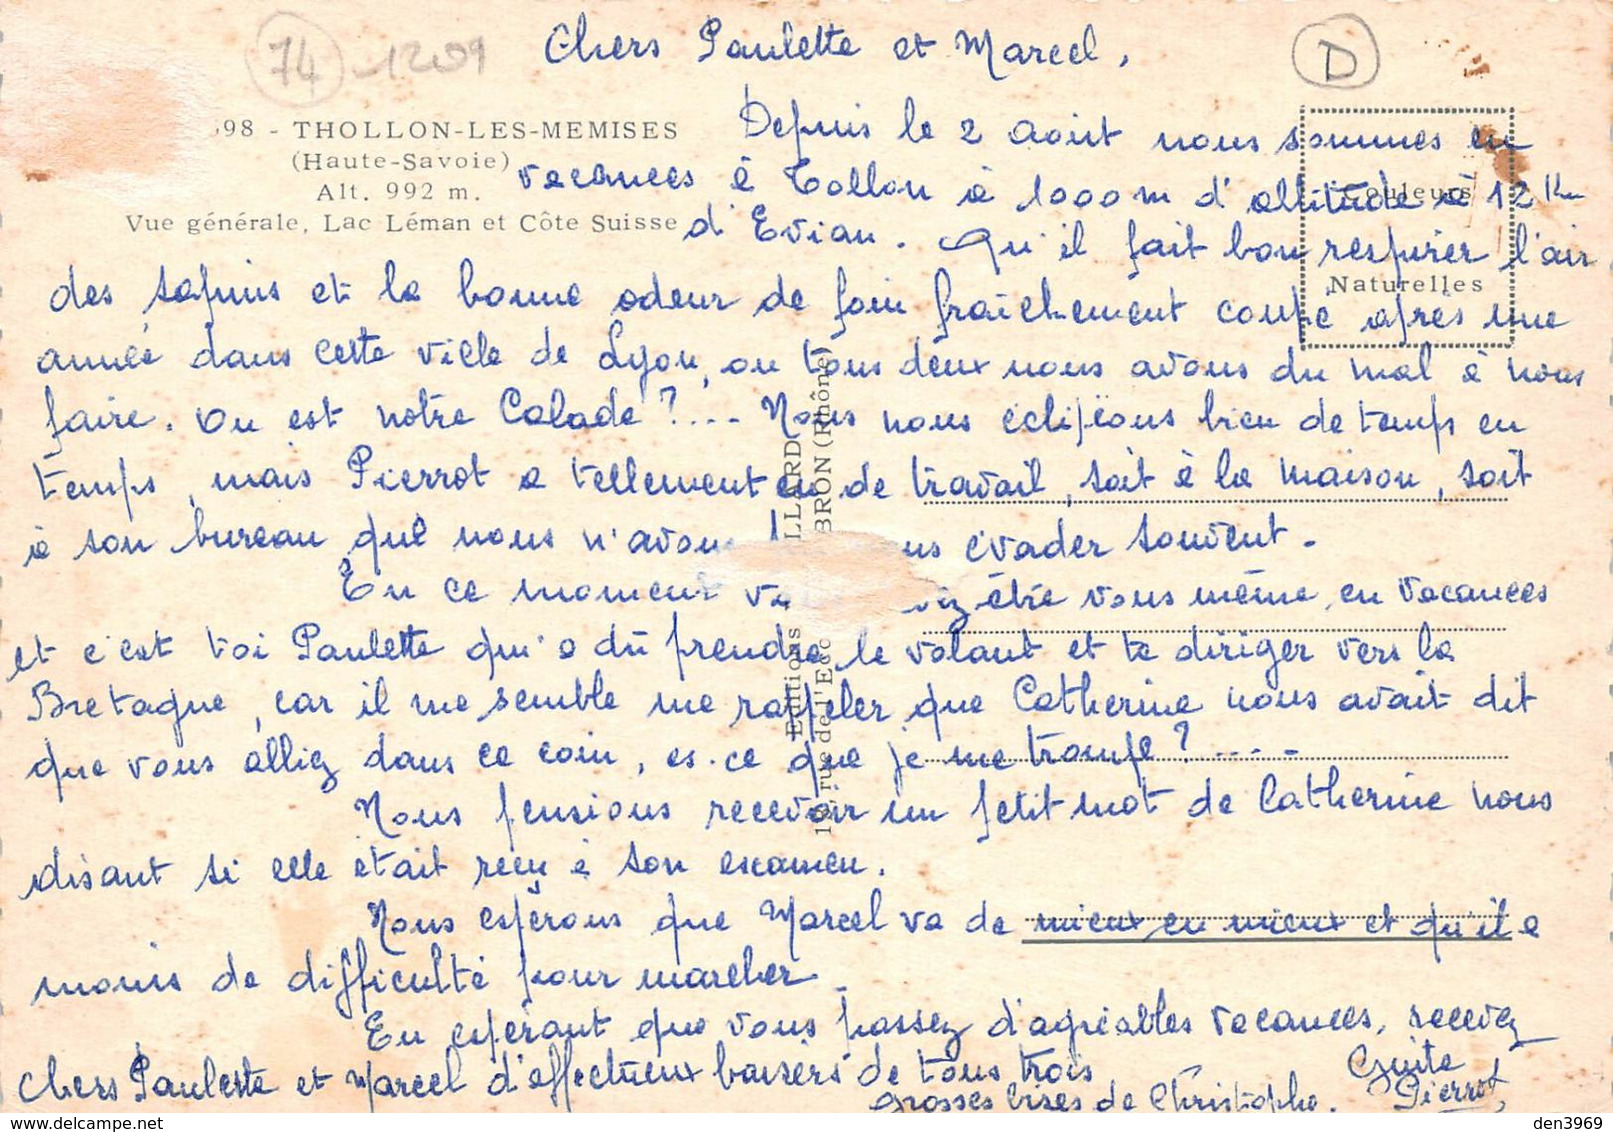 74 1209
D
Chers Paulette et Marcel,
98 - THOLLON-LES-MEMISES
(Haute-Savoie)
Alt. 992 m.
Vue générale, Lac Léman et Côte Suisse
Couleurs
Naturelles
Depuis le 2 août nous sommes en
vacances à Tollon à 1000 m d'altitude à 12 Km
d'Evian. Qu'il fait bon respirer l'air
des sapins et la bonne odeur de foin fraîchement coupé après une
année dans cette ville de Lyon, ou tous deux nous avons du mal à nous
faire. Ou est notre Calade ? .... Nous nous éclipsons bien de temps en
temps, mais Pierrot a tellement eu de travail, soit à la maison, soit
à son bureau que nous n'avons us évader souvent.
En ce moment ez être vous même en vacances
et c'est toi Paulette qui a dû prendre le volant et te diriger vers la
Bretagne, car il me semble me rappeler que Catherine nous avait dit
que vous alliez dans ce coin, es-ce que je me trompe ? .....
Nous pensions recevoir un petit mot de Catherine nous
disant si elle était reçu à son examen.
Nous espérons que Marcel va de mieux en mieux et qu'il a
moins de difficulté pour marcher.
En espérant que vous passez d'agréables vacances, recevez
chers Paulette et Marcel d'affectueux baisers de tous trois
Guite
Pierrot
Grosses bises de Christophe.
Editions LLARD
rue de l'Ego BRON (Rhône)
den3969